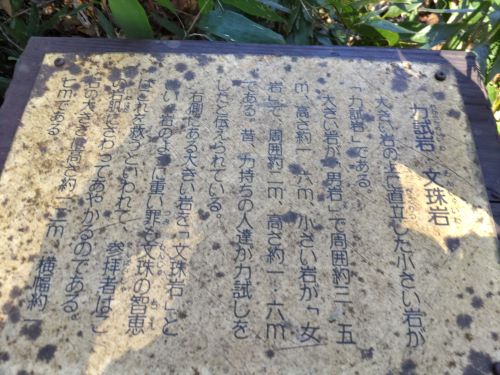 力試岩 文珠岩
大きい岩の上に直立した小さい岩が
「力試岩」である。
大きい岩が「男岩」で周囲約三・五
m、高さ約一・六m、小さい岩が「女
岩」で、周囲約二m、高さ約一・六m
である。昔、力持ちの人達が力試しを
したと伝えられている。
右側にある大きい岩を「文珠岩」と
いい、岩のように重い罪も文珠の智恵
はこれを救うといわれて、参拝者はこ
の岩にさわってあやかるのである。
岩の大きさは高さ約一二m、横幅約
七mである。